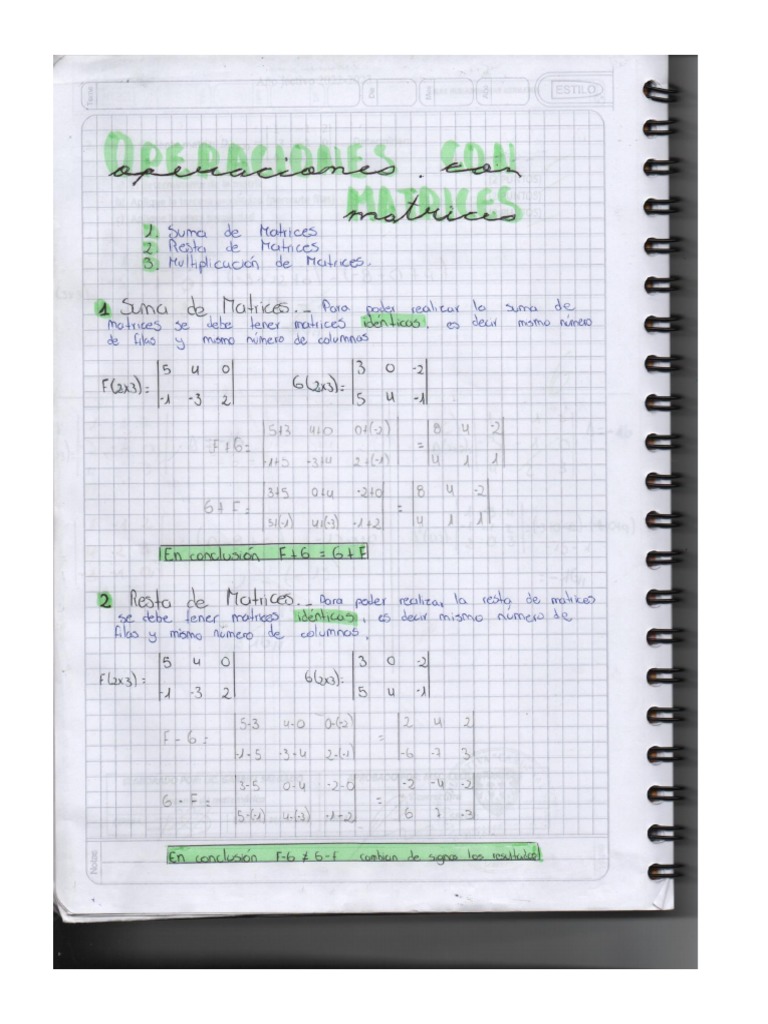 ESTILO
OPERACIONES CON
operaciones con
MATRICES
matrices
1. Suma de Matrices
2. Resta de Matrices
3. Multiplicación de Matrices.
1 Suma de Matrices._ Para poder realizar la suma de
matrices se debe tener matrices idénticas, es decir mismo número
de filas y mismo número de columnas
F(2x3)= |5 4 0| G(2x3)= |3 0 -2|
|-1 -3 2| |5 4 -1|
F+G= |5+3 4+0 0+(-2)| = |8 4 -2|
|-1+5 -3+4 2+(-1)| |4 1 1|
G+F= |3+5 0+4 -2+0| = |8 4 -2|
|5+(-1) 4+(-3) -1+2| |4 1 1|
En conclusión F+G = G+F
2 Resta de Matrices._ Para poder realizar la resta de matrices
se debe tener matrices idénticas, es decir mismo numero de
filas y mismo número de columnas.
F(2x3)= |5 4 0| G(2x3)= |3 0 -2|
|-1 -3 2| |5 4 -1|
F-G= |5-3 4-0 0-(-2)| = |2 4 2|
|-1-5 -3-4 2-(-1)| |-6 -7 3|
G-F= |3-5 0-4 -2-0| = |-2 -4 -2|
|5-(-1) 4-(-3) -1-2| |6 7 -3|
Notas:
En conclusión F-G ≠ G-F cambian de signos los resultados